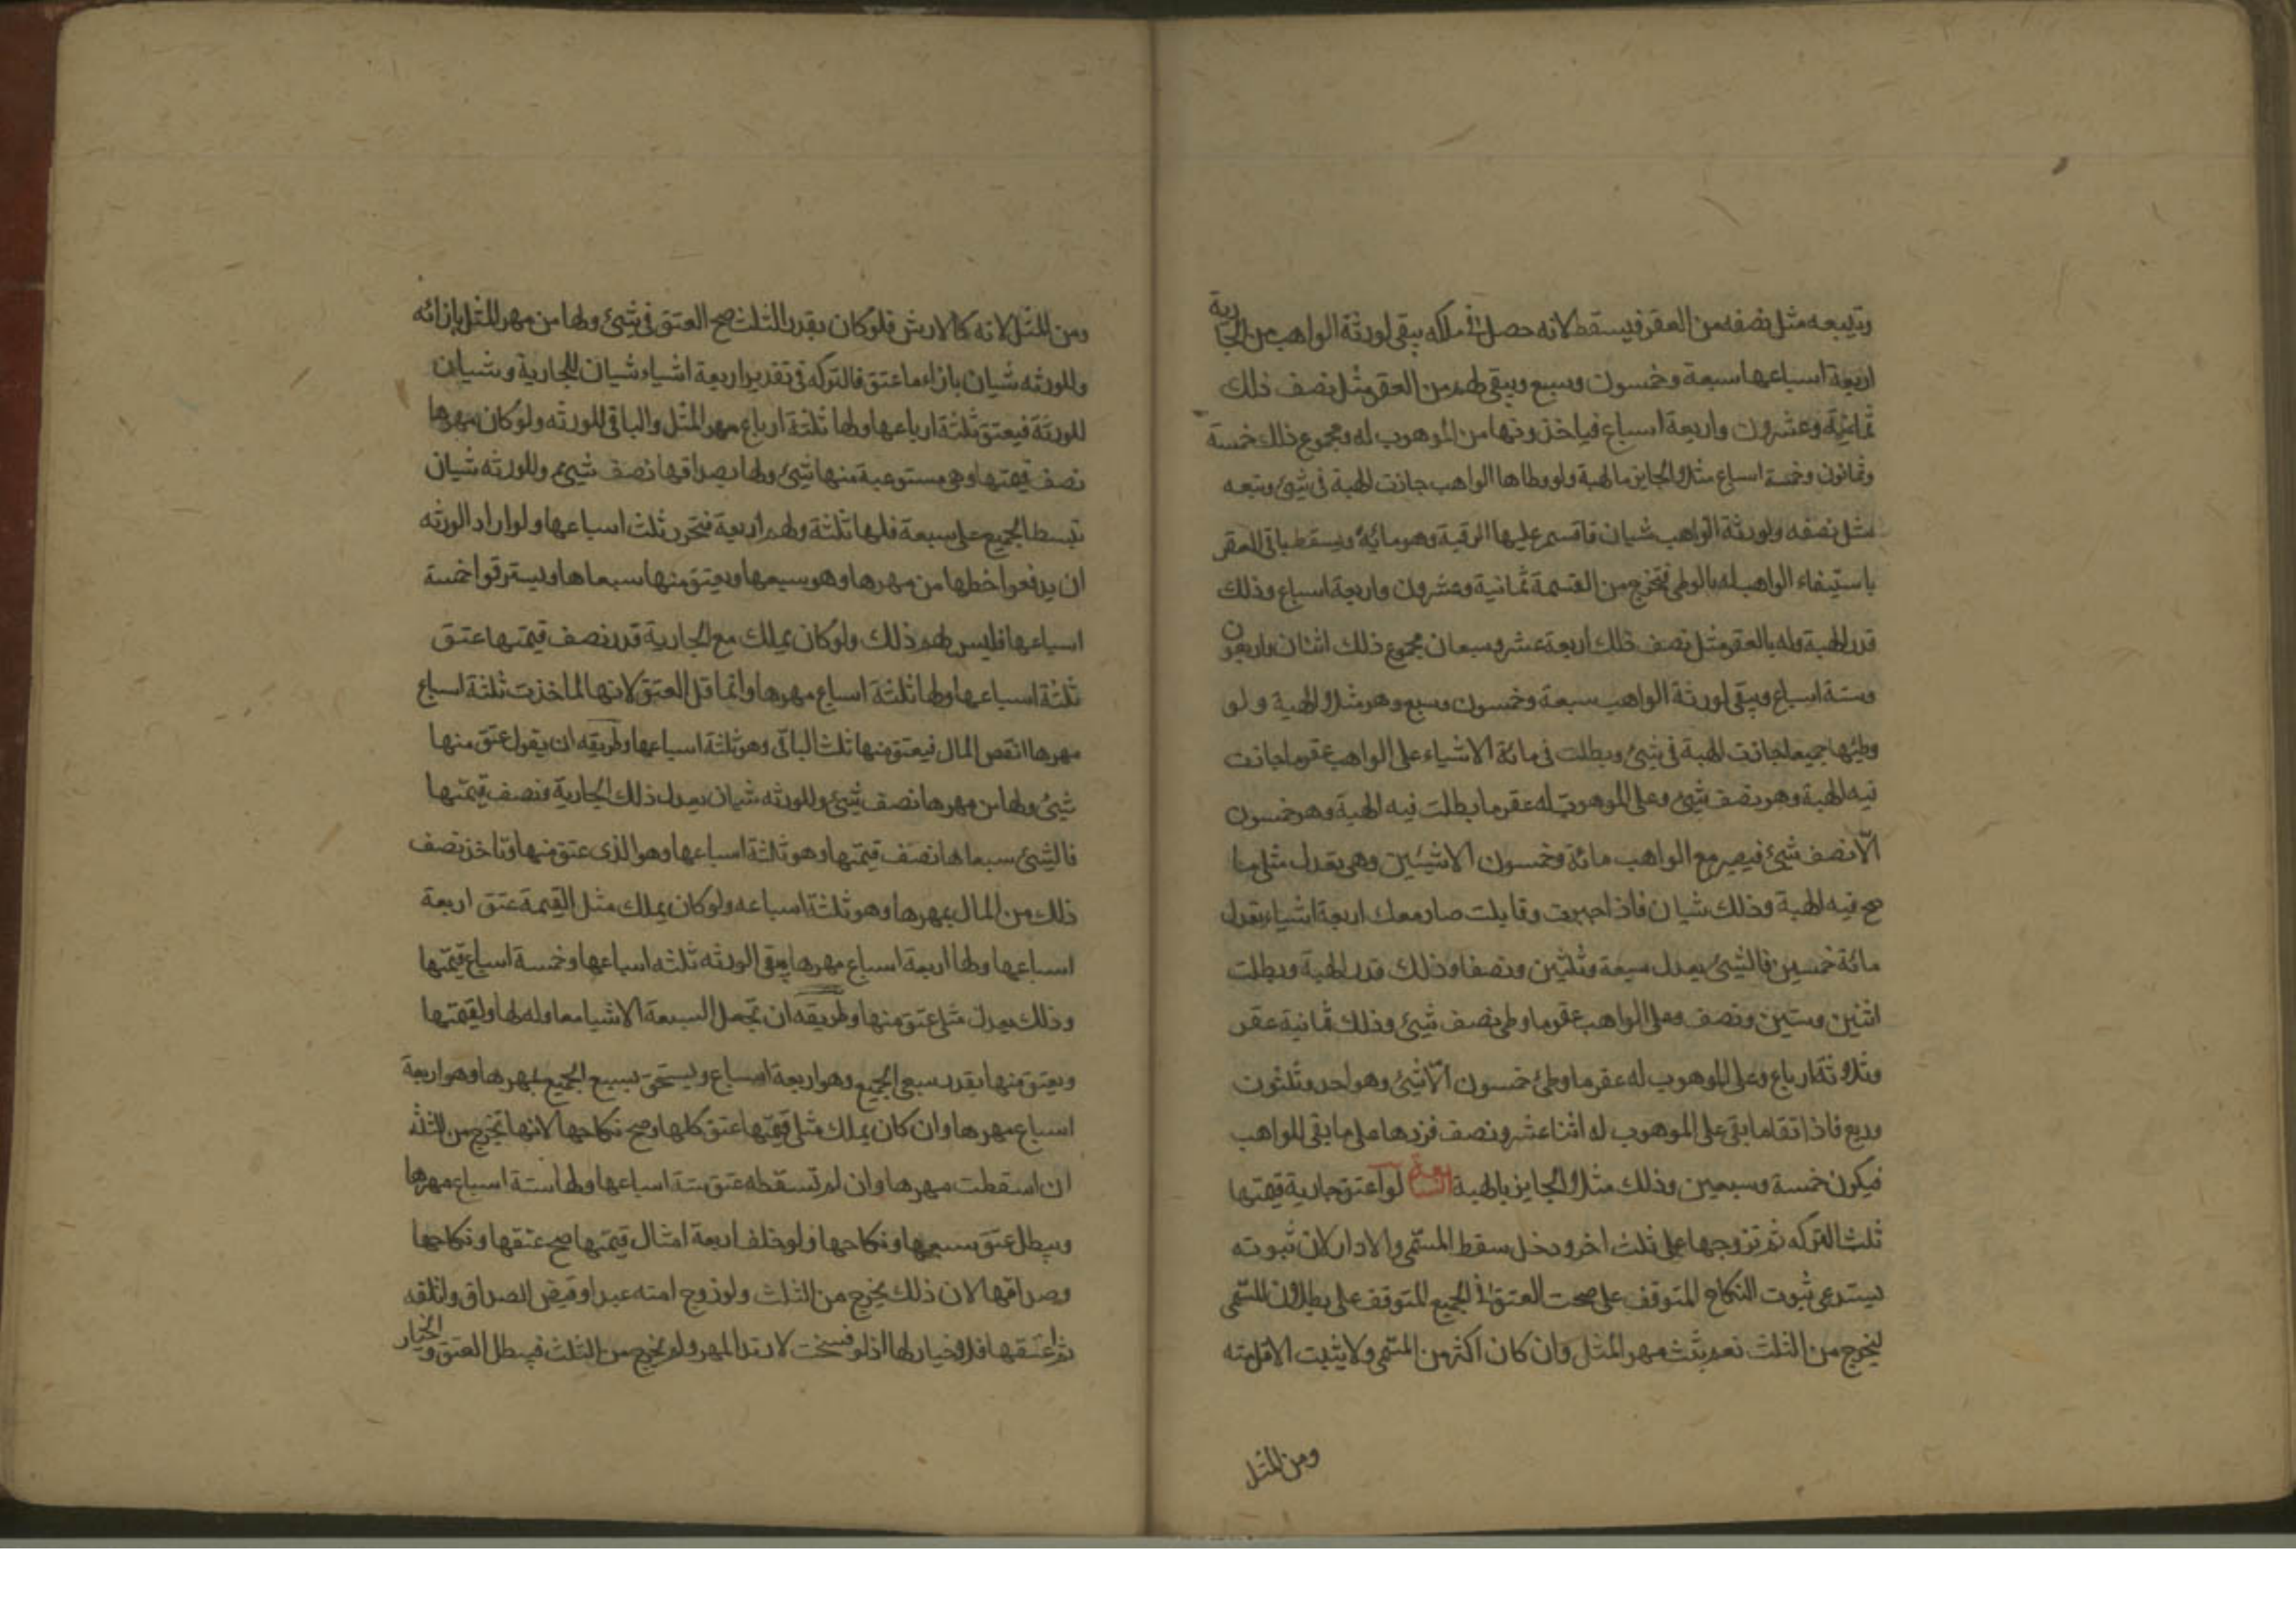 ويتبعه مثل نصفه من العقر فيسقط لانه حصل في ملكه يبقى لورثة الواهب من الجارية
اربعة اسباعها سبعة وخمسون وسبع ويبقى لهم من العقر مثل نصف ذلك
ثمانية وعشرون واربعة اسباع فياخذونها من الموهوب له ومجموع ذلك خمسة
وثمانون وخمسة اسباع مثلا الجايز بالهبة ولو وطاها الواهب جازت الهبة في شيئ وتبعه
مثل نصفه ولورثة الواهب شيان فاقسم عليها الرقبة وهو مائة ويسقط باقي العقر
باستيفاء الواهب له بالوطي فتخرج من القسمة ثمانية وعشرون واربعة اسباع وذلك
قدر الهبة وله بالعقر مثل نصف ذلك اربعة عشر وسبعان مجموع ذلك اثنان واربعون
وستة اسباع ويبقى لورثة الواهب سبعة وخمسون وسبع وهو مثلا الهبة ولو
وطئها جميعا جازت الهبة في شيئ وبطلت في مائة الا شياء على الواهب عقر ما جازت
فيه الهبة وهو نصف شيئ وعلى الموهوب له عقر ما بطلت فيه الهبة وهو خمسون
الا نصف شيئ فيصير مع الواهب مائة وخمسون الا شيئين وهي يعدل مثلي ما
صح فيه الهبة وذلك شيان فاذا جبرت وقابلت صار معك اربعة اشياء يعدل
مائة خمسين فالشيئ يعدل سبعة وثلثين ونصفا وذلك قدر الهبة وبطلت
اثنين وستين ونصف وعلى الواهب عقر ما وطي نصف شيئ وذلك ثمانية عشر
وثلاثة ارباع وعلى الموهوب له عقر ما وطئ خمسون الا شيئ وهو احد وثلثون
وربع فاذا تقاصا بقى على الموهوب له اثنا عشر ونصف فزدها على ما بقى للواهب
فيكون خمسة وسبعين وذلك مثلا الجايز بالهبة لو اعتق جارية قيمتها
ثلث التركه ثم تزوجها على ثلث اخر ودخل سقط المسمى والا دار لان ثبوته
يستدعى ثبوت النكاح المتوقف على صحت العتق في الجميع المتوقف على بطلان المسمى
ليخرج من الثلث نعم يثبت مهر المثل وان كان اكثر من المسمى ولا يثبت الاقل منه
ومن المثل
ومن المثل لانه كالارش فلو كان بقدر الثلث صح العتق في شيئ ولها من مهر المثل بازائه
وللورثه شيان بازاء ما عتق فالتركه في تقدير اربعة اشياء شيان للجارية وشيان
للورثة فيعتق ثلثة ارباعها ولها ثلثة ارباع مهر المثل والباقي للورثه ولو كان مهرها
نصف قيمتها وهي مستوعبة منها شيئ ولها بصداقها نصف شيئ وللورثه شيان
تبسط الجميع على سبعة فلها ثلثة ولهم اربعة فتحرر ثلث اسباعها ولو اراد الورثه
ان يدفعوا حظها من مهرها وهو سبعها ويعتق منها سبعاها ويسترقوا خمسة
اسباعها فليس لهم ذلك ولو كان يملك مع الجارية قدر نصف قيمتها عتق
ثلثة اسباعها ولها ثلثة اسباع مهرها وانما قل العتق لانها لما اخذت ثلثة اسباع
مهرها انقص المال فيعتق منها ثلث الباقي وهو ثلثة اسباعها وطريقه ان يقول عتق منها
شيئ ولها من مهرها نصف شيئ وللورثه شيان يعدل ذلك الجارية ونصف قيمتها
فالشيئ سبعاها نصف قيمتها وهو ثلثة اسباعها وهو الذي عتق منها وتاخذ نصف
ذلك من المال بمهرها وهو ثلثة اسباعه ولو كان يملك مثل القيمة عتق اربعة
اسباعها ولها اربعة اسباع مهرها يبقى الورثه ثلثه اسباعها وخمسة اسباع قيمتها
وذلك يعدل مثلي عتق منها وطريقه ان تجعل السبعة الاشيا معا وله لها ولقيمتها
ويعتق منها بقدر سبعي الجميع وهو اربعة اسباع ويستحق بسبع الجميع بمهرها وهو اربعة
اسباع مهرها وان كان يملك مثلي قيمتها عتق كلها وصح نكاحها لانها تخرج من الثلث
ان اسقطت مهرها وان لم تسقطه عتق ستة اسباعها ولها ستة اسباع مهرها
ويبطل عتق سبعها ونكاحها ولو خلف اربعة امثال قيمتها صح عتقها ونكاحها
وصداقها لان ذلك يخرج من الثلث ولو زوج امته عبدا وقبض الصداق واتلفه
ثم اعتقها فلا خيار لها اذ لو فسخت لارتد المهر ولم يخرج من الثلث فيبطل العتق والخيار